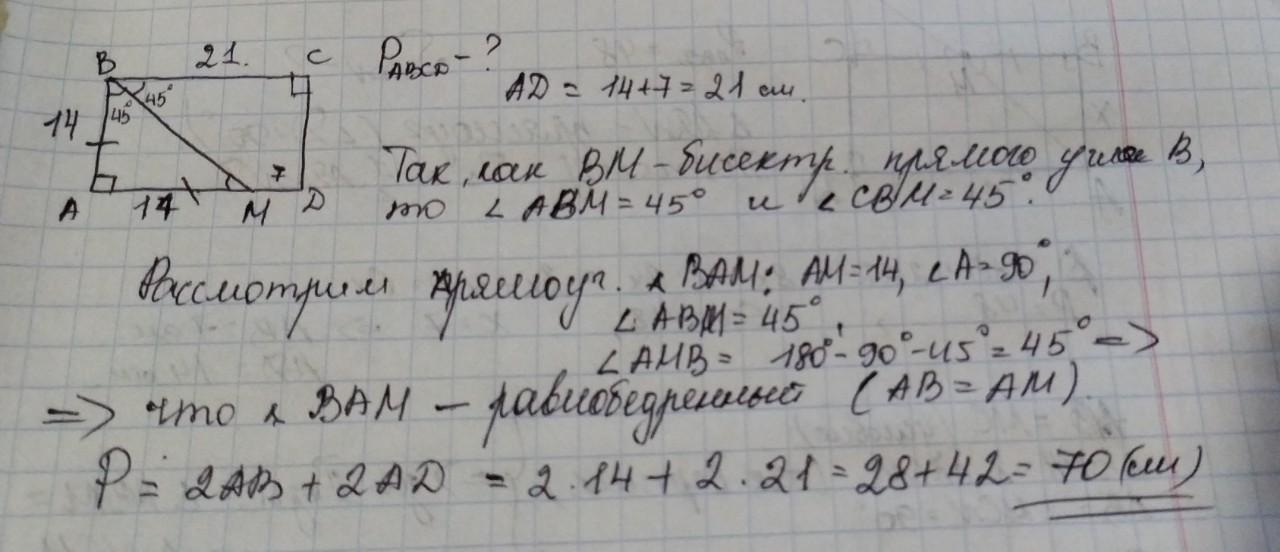 B 21. C
45° 45°
14
7
A 14 M D
P_ABCD - ?
AD = 14+7 = 21 см.
Так как BM - бисектр. прямого угла B,
то ∠ABM = 45° и ∠CBM = 45°.
Рассмотрим прямоуг. △ BAM: AM = 14, ∠A = 90°,
∠ABM = 45°
∠AMB = 180° - 90° - 45° = 45° =>
=> что △ BAM - равнобедренный (AB = AM)
P = 2AB + 2AD = 2·14 + 2·21 = 28 + 42 = 70 (см)